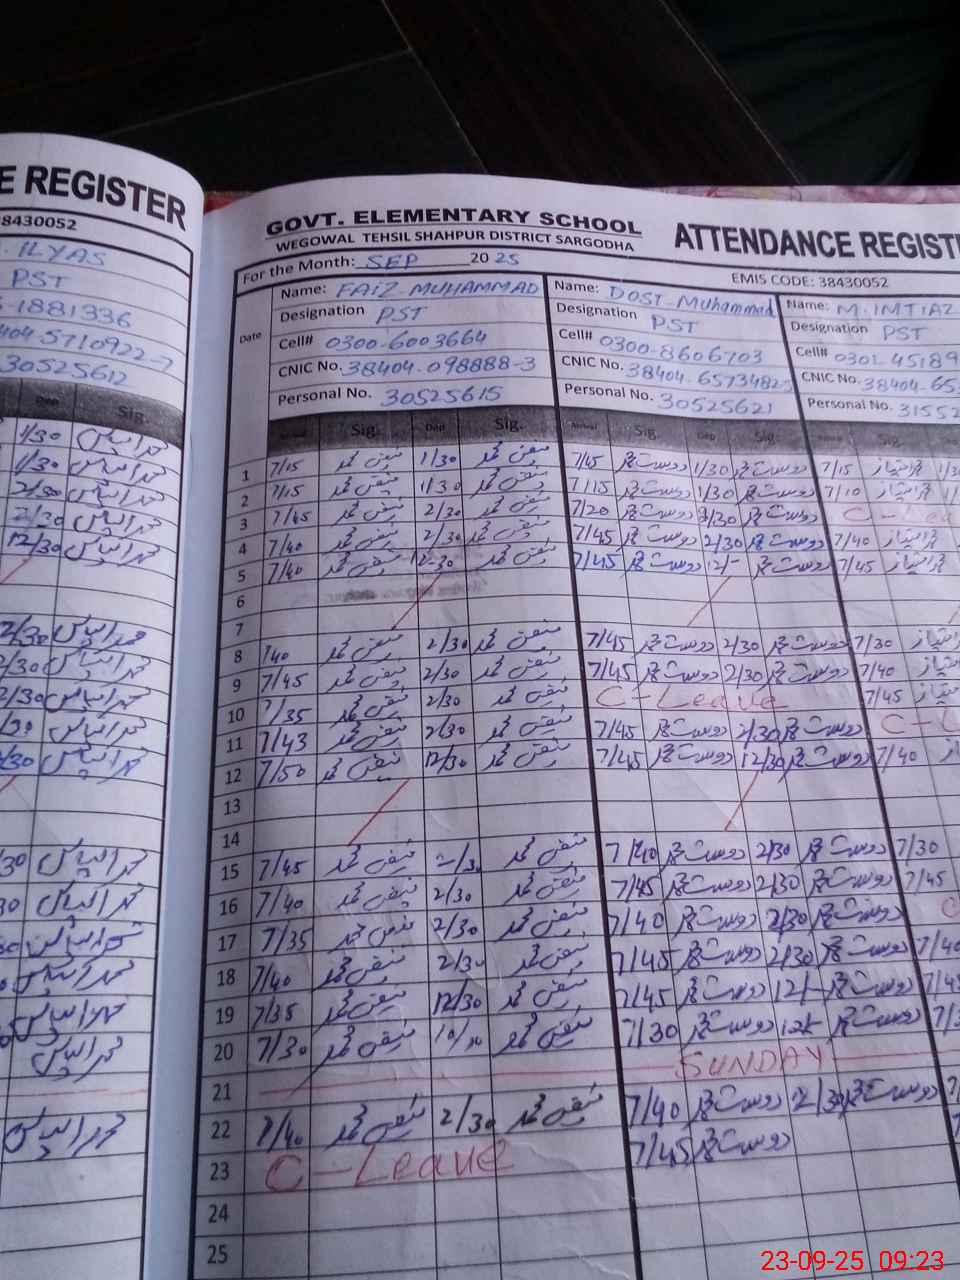 E REGISTER
38430052
. ILYAS
PST
-1881336
404-5710922-7
30525612
Dep Sig.
1/30 محمد الیاس
1/30 محمد الیاس
2/30 محمد الیاس
2/30 محمد الیاس
12/30 محمد الیاس
2/30 محمد الیاس
2/30 محمد الیاس
2/30 محمد الیاس
/30 محمد الیاس
/30 محمد الیاس
/30 محمد الیاس
30 محمد الیاس
محمد الیاس
محمد الیاس
محمد الیاس
محمد الیاس
محمد الیاس
GOVT. ELEMENTARY SCHOOL
WEGOWAL TEHSIL SHAHPUR DISTRICT SARGODHA
ATTENDANCE REGISTE
For the Month: SEP 2025
EMIS CODE: 38430052
Date
Name: FAIZ MUHAMMAD Name: DOST-Muhammad Name: M. IMTIAZ
Designation PST Designation PST Designation PST
Cell# 0300-6003664 Cell# 0300-8606703 Cell# 0301-45189
CNIC No. 38404-098888-3 CNIC No. 38404-6573482-5 CNIC No. 38404-65
Personal No. 30525615 Personal No. 30525621 Personal No. 31552
Arrival Sig. Dep Sig. Arrival Sig. Dep Sig.
1 7/15 فیض محمد 1/30 فیض محمد 7/45 دوست محمد 1/30 دوست محمد 7/15 محمد امتیاز 1/30
2 7/15 فیض محمد 1/30 فیض محمد 7/15 دوست محمد 1/30 دوست محمد 7/10 محمد امتیاز
3 7/45 فیض محمد 2/30 فیض محمد 7/20 دوست محمد 2/30 دوست محمد C-Lea
4 7/40 فیض محمد 2/30 فیض محمد 7/45 دوست محمد 2/30 دوست محمد 7/40 محمد امتیاز
5 7/40 فیض محمد 12-30 فیض محمد 7/45 دوست محمد 12/- دوست محمد 7/45 محمد امتیاز
6
7
8 /40 فیض محمد 2/30 فیض محمد 7/45 دوست محمد 2/30 دوست محمد 7/30 امتیاز
9 7/45 فیض محمد 2/30 فیض محمد 7/45 دوست محمد 2/30 دوست محمد 7/40
10 7/35 فیض محمد 2/30 فیض محمد C-Leave 7/45 امتیاز
11 7/43 فیض محمد 2/30 فیض محمد 7/45 دوست محمد 2/30 دوست محمد C-L
12 7/50 فیض محمد 12/30 فیض محمد 7/45 دوست محمد 12/30 دوست محمد 7/40
13
14
15 7/45 فیض محمد 2/30 فیض محمد 7/40 دوست محمد 2/30 دوست محمد 7/30
16 7/40 فیض محمد 2/30 فیض محمد 7/45 دوست محمد 2/30 دوست محمد 7/45
17 7/35 فیض محمد 2/30 فیض محمد 7/40 دوست محمد 2/30 دوست محمد C
18 7/40 فیض محمد 2/30 فیض محمد 7/45 دوست محمد 2/30 دوست محمد 7/40
19 7/35 فیض محمد 12/30 فیض محمد 7/45 دوست محمد 12/- دوست محمد 7/45
20 7/30 فیض محمد 10/30 فیض محمد 7/30 دوست محمد 12/- دوست محمد 7/3
21 SUNDAY
22 7/40 فیض محمد 2/30 فیض محمد 7/40 دوست محمد 2/30 دوست محمد
23 C-Leave 7/45 دوست محمد
24
25
23-09-25 09:23